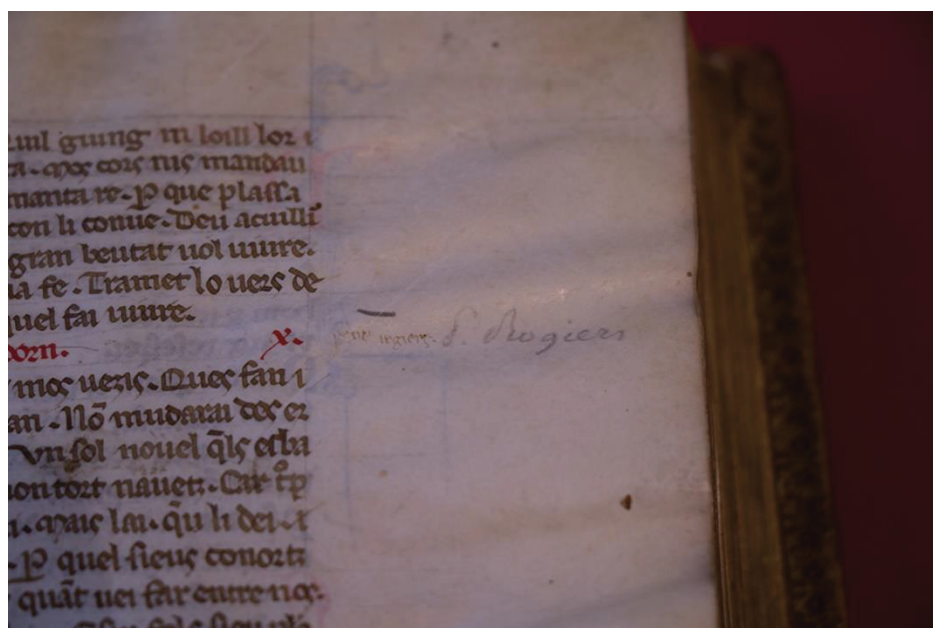 giung in loill lor i
cors nis mandau
manta re. P que plassa
con li conue. Deu acuilli
gran beutat uol uiure.
ia fe. Tramet lo uers de
quel fai uiure.
born. X.
P. Rogiers
mos uezis. Ques fan i
an. Nō mudarai des er
Vn sol nouel q̄ls esba
tort nauetz. Car
mais lai. q̄u li dei
P quel sieus conortz
quāt uei far entre nos.